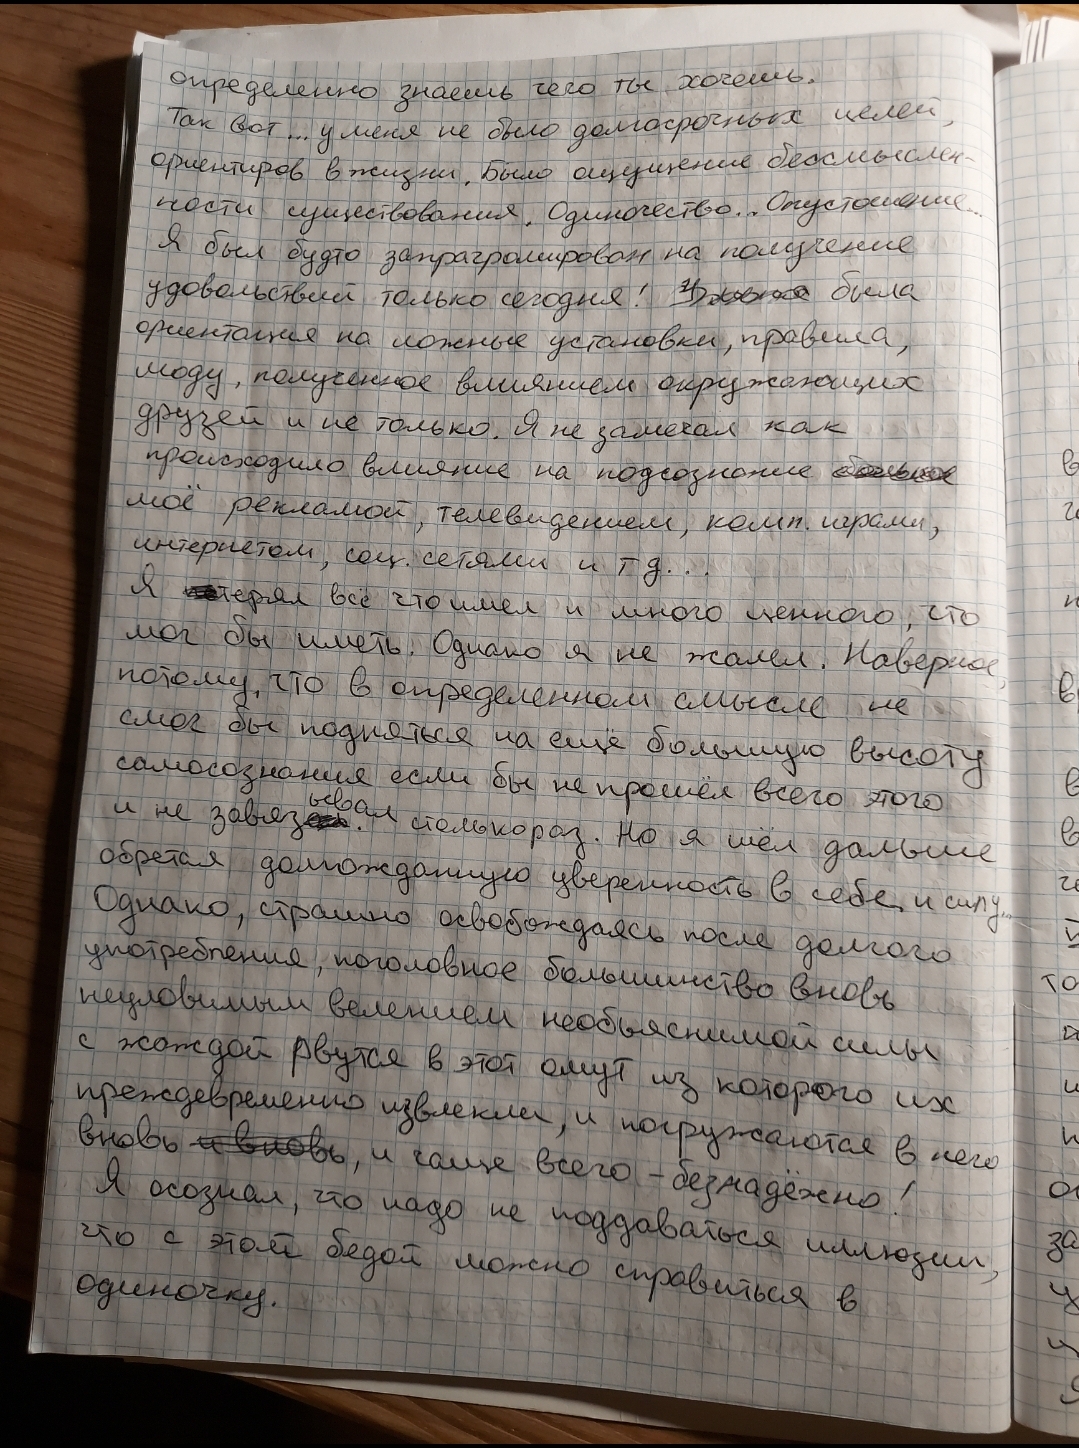 определенно знаешь чего ты хочешь.
Так вот... у меня не было долгосрочных целей,
ориентиров в жизни. Было ощущение бессмыслен-
ности существования. Одиночество... Опустошение...
Я был будто запрограмирован на получение
удовольствий только сегодня! была
ориентация на ложные установки, правила,
моду, полученное влиянием окружающих
друзей и не только. Я не замечал как
происходило влияние на подсознание
моё рекламой, телевидением, комп. играми,
интернетом, соц. сетями и т д...
Я терял всё что имел и много ценного, что
мог бы иметь. Однако я не жалел. Наверное,
потому, что в определенном смысле не
смог бы подняться на ещё большую высоту
самосознания если бы не прошёл всего этого
и не завязывал столько раз. Но я шёл дальше
обретая долгожданную уверенность в себе и силу...
Однако, страшно освобождаясь после долгого
употребления, поголовное большинство вновь
неуловимым велением необъяснимой силы
с жаждой рвутся в этот омут из которого их
преждевременно извлекли, и погружаются в него
вновь и вновь, и чаще всего - безнадёжно!
Я осознал, что надо не поддаваться иллюзии,
что с этой бедой можно справиться в
одиночку.